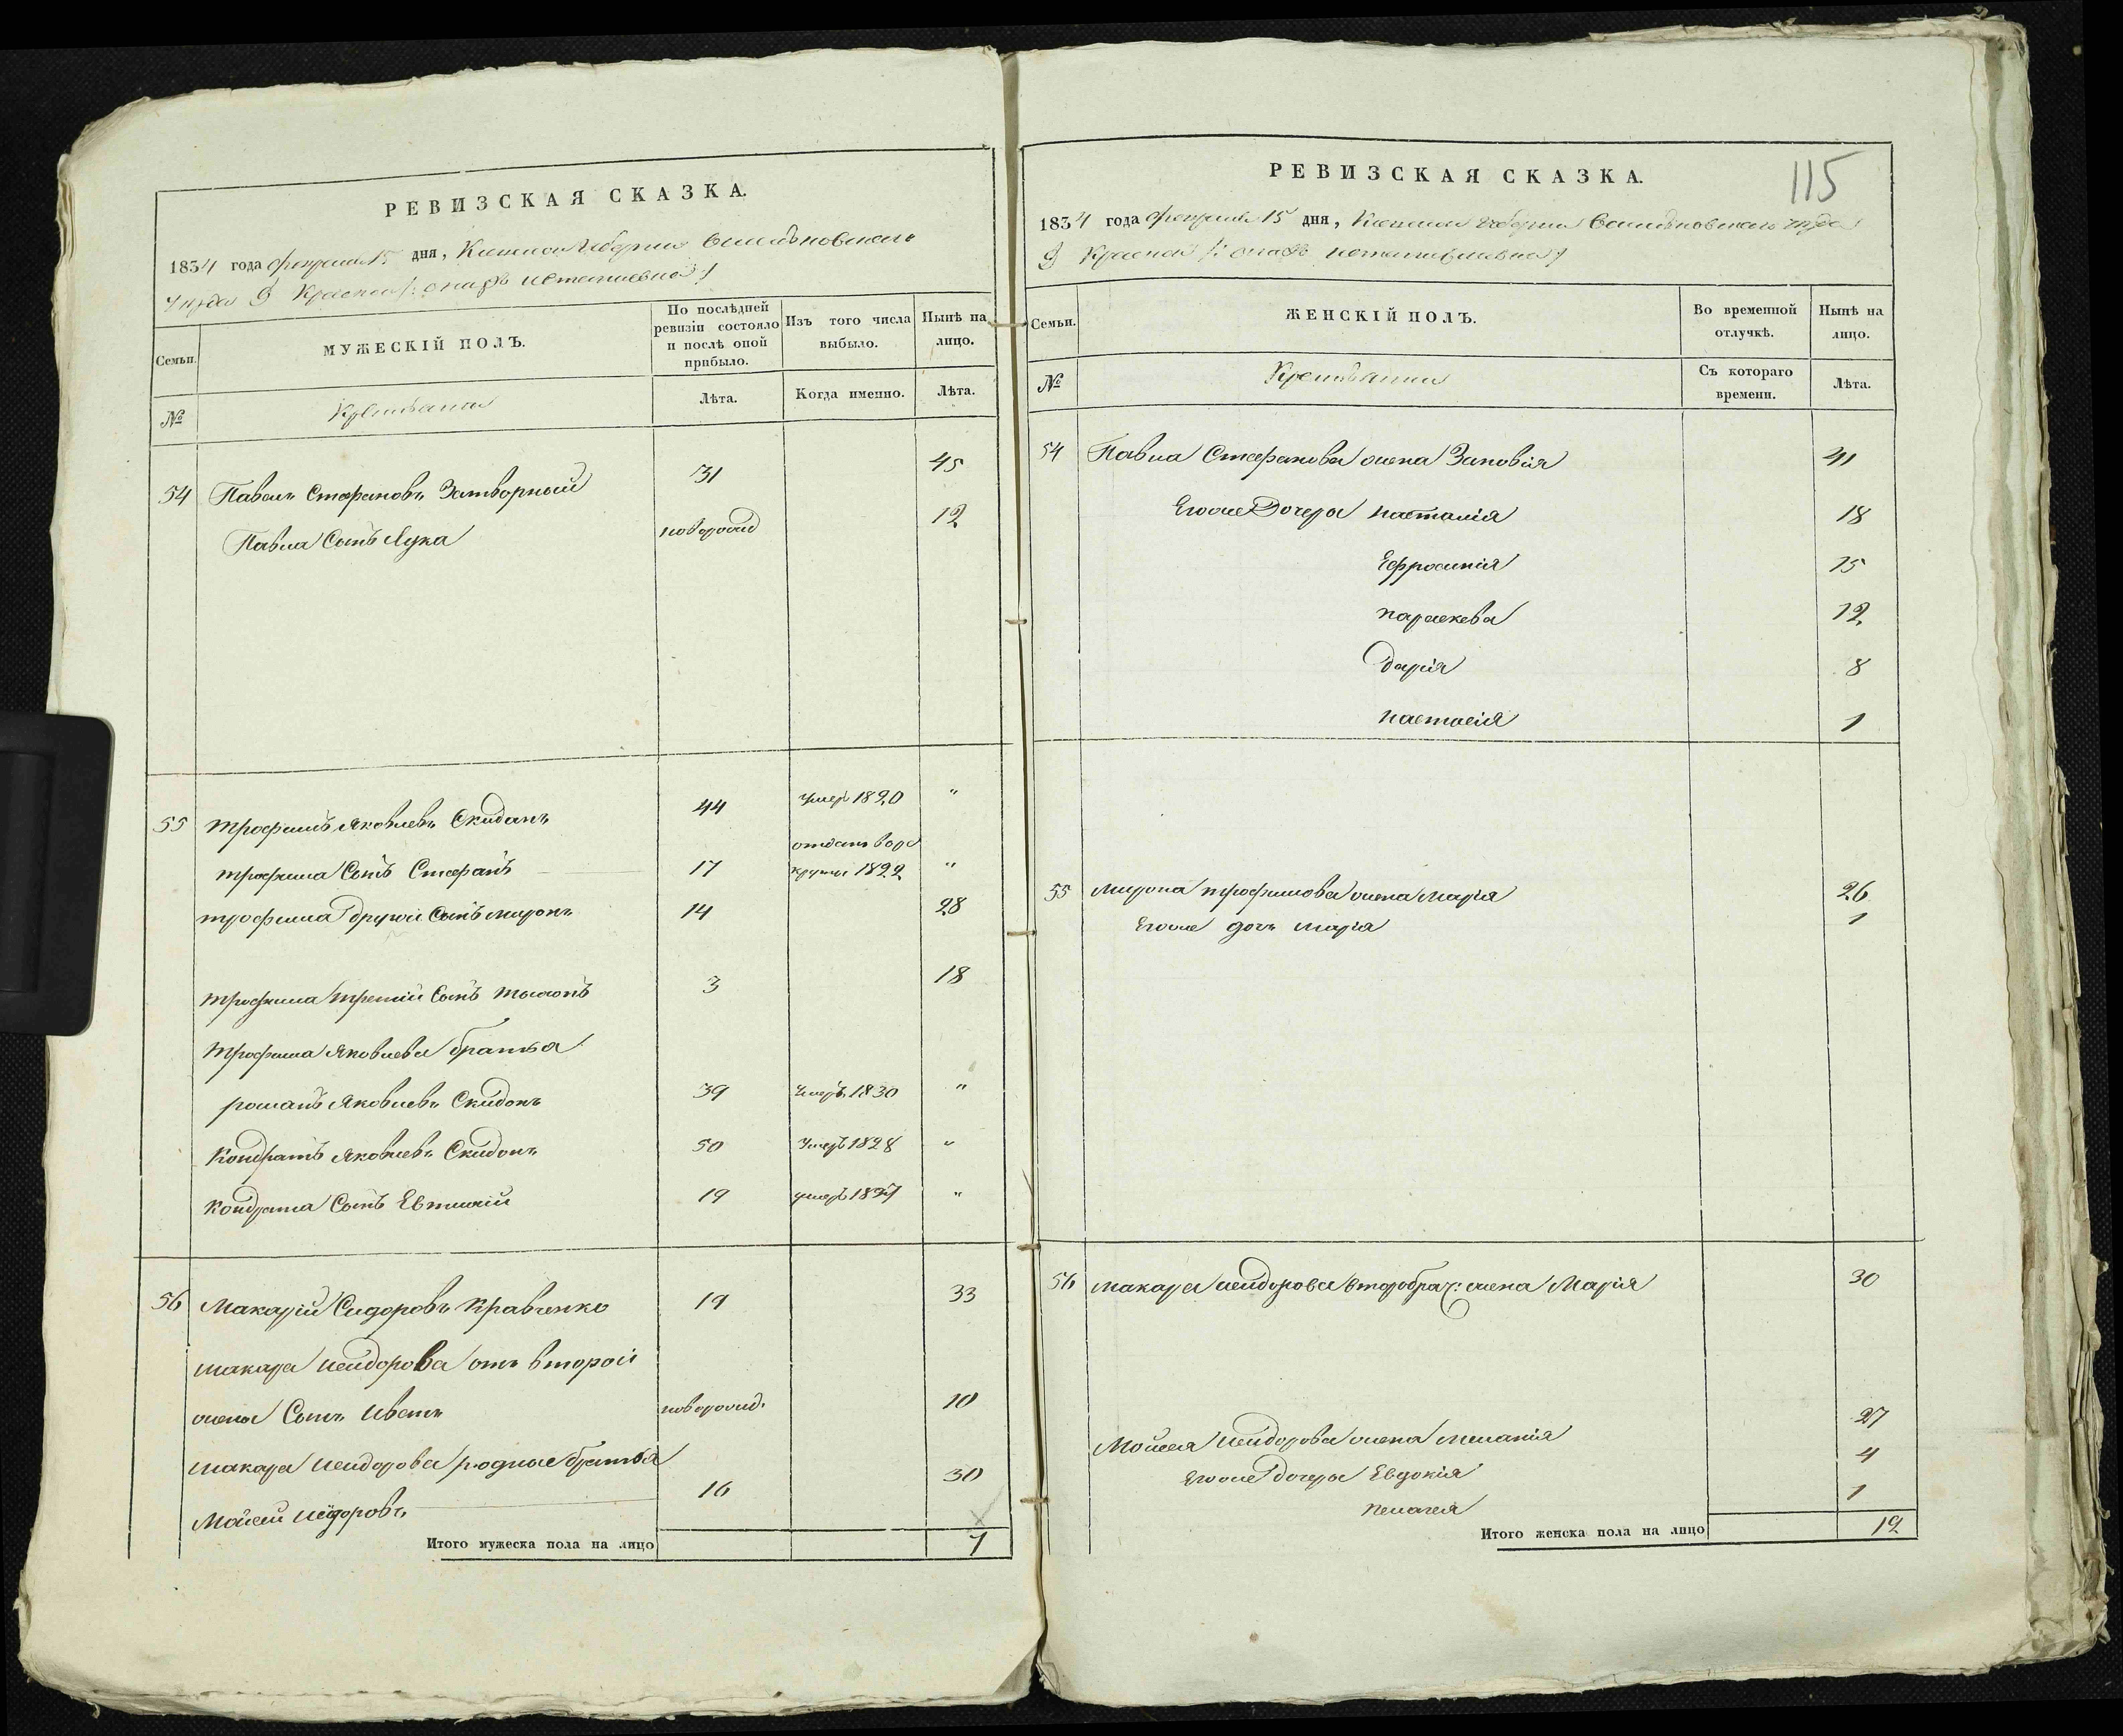 РЕВИЗСКАЯ СКАЗКА.
1834 года февраля 15 дня, Киевской губернии
уезда Красной
Семьи.
МУЖЕСКІЙ ПОЛЪ.
По послѣдней ревизіи состояло и послѣ оной прибыло.
Изъ того числа выбыло.
Нынѣ на лицо.
№
Крестьянъ
Лѣта.
Когда именно.
Лѣта.
54 Павелъ Стефановъ Затворный 31 45
Павла Сынъ Лука новорожд 12
55 Трофимъ Яковлевъ Скиданъ 44 умер 1820 "
отданъ въ ре
трофима Сынъ Стефанъ 17 круты 1822 "
трофима другий Сынъ миронъ 14 28
трофима третий Сынъ 3 18
трофима Яковлева братья
романъ Яковлевъ Скидонъ 39 Умеръ 1830 "
Кондратъ Яковлевъ Скидонъ 50 Умеръ 1828 "
Кондрата Сынъ Евтихій 19 умеръ "
56 Макарий Сидоровъ Кравченко 19 33
макара исидорова отъ второй
жены Сынъ Иванъ новорожд. 10
макара исидорова родные братья
Мойсей исидоровъ 16 30
Итого мужеска пола на лицо 7
115
РЕВИЗСКАЯ СКАЗКА.
1834 года февраля 15 дня, Киевской губернии уезда
Красной
Семьи.
ЖЕНСКІЙ ПОЛЪ.
Во временной отлучкѣ.
Нынѣ на лицо.
№
Крестьянки
Съ котораго времени.
Лѣта.
54 Павла Стефанова жена Зиновія 41
Егоже Дочеры наталія 18
Ефросинія 15
параскева 12
дарія 8
настасія 1
55 Мирона трофимова жена Марія 26
Егоже дочь марія 1
56 макара исидорова второбрач: жена Марія 30
Мойсея исидорова жена меланія 27
Егоже дочеры Евдокія 4
пелагея 1
Итого женска пола на лицо 12